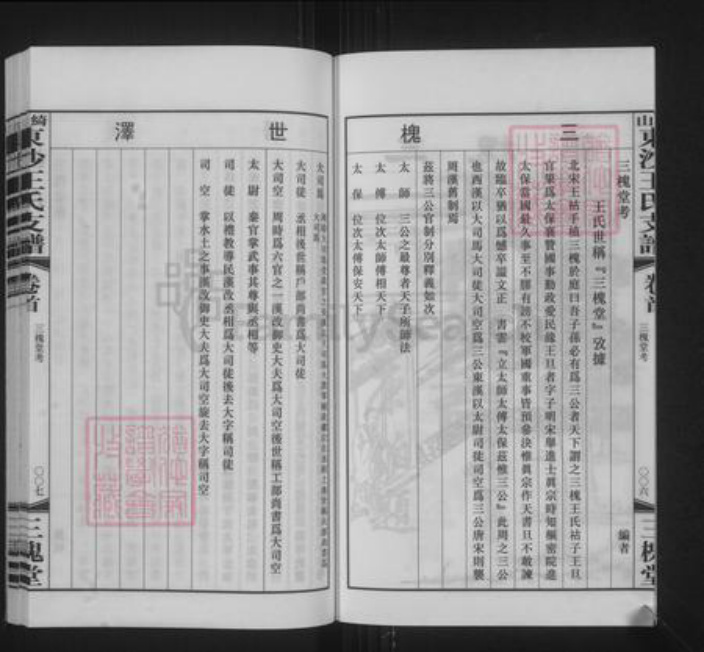 三槐世澤
三槐堂考
編者
王氏世稱『三槐堂』攷據
北宋王祜手植三槐於庭曰吾子孫必有爲三公者天下謂之三槐王氏祜子王旦
官肇爲太保襄贊國事勤政愛民緣王旦者字子明宋舉進士眞宗時知樞密院進
太保當國最久事至不膠有謗不校軍國重事皆預參決惟眞宗作天書旦不敢諫
故臨卒猶以爲憾卒謚文正 書云『立太師太傅太保茲惟三公』此周之三公
也西漢以大司馬大司徒大司空爲三公東漢以太尉司徒司空爲三公唐宋則襲
周漢舊制焉
茲將三公官制分別釋義如次
太師 三公之最尊者天子所師法
太傅 位次太師傅相天下
太保 位次太傅保安天下
山東沙王氏支譜
卷首
三槐堂考
〇〇六
三槐堂
大司馬
大司徒 丞相後世稱戶部尚書爲大司徒
大司空 周時爲六官之一漢改御史大夫爲大司空後世稱工部尚書爲大司空
太尉 秦官掌武事其尊與丞相等
司徒 以禮教導民漢改丞相爲大司徒後去大字稱司徒
司空 掌水土之事漢改御史大夫爲大司空旋去大字稱司空
綺東沙王氏支譜
卷首
三槐堂考
〇〇七
三槐堂